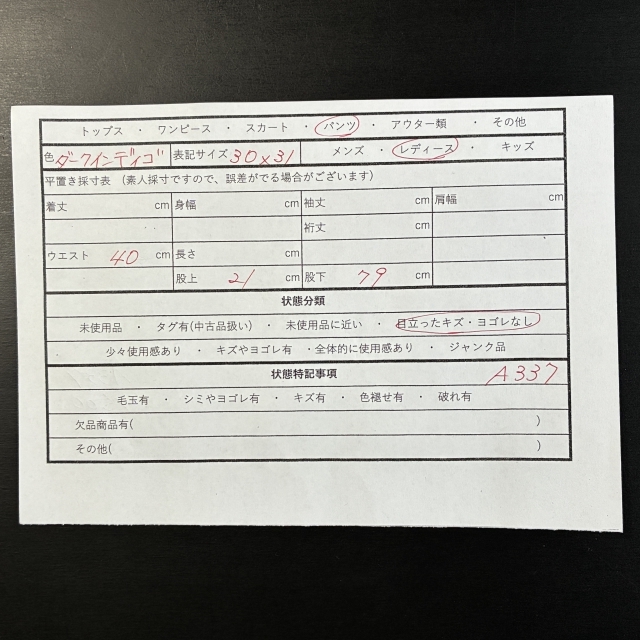 トップス ・ ワンピース ・ スカート ・ パンツ ・ アウター類 ・ その他
色 ダークインディゴ 表記サイズ 30×31 メンズ ・ レディース ・ キッズ
平置き採寸表 （素人採寸ですので、誤差がでる場合がございます）
着丈 cm 身幅 cm 袖丈 cm 肩幅 cm
裄丈 cm
ウエスト 40 cm 長さ cm
股上 21 cm 股下 79 cm
状態分類
未使用品 ・ タグ有(中古品扱い) ・ 未使用品に近い ・ 目立ったキズ・ヨゴレなし
・ 少々使用感あり ・ キズやヨゴレ有 ・全体的に使用感あり ・ ジャンク品
状態特記事項 A337
毛玉有 ・ シミやヨゴレ有 ・ キズ有 ・ 色褪せ有 ・ 破れ有
欠品商品有( )
その他( )